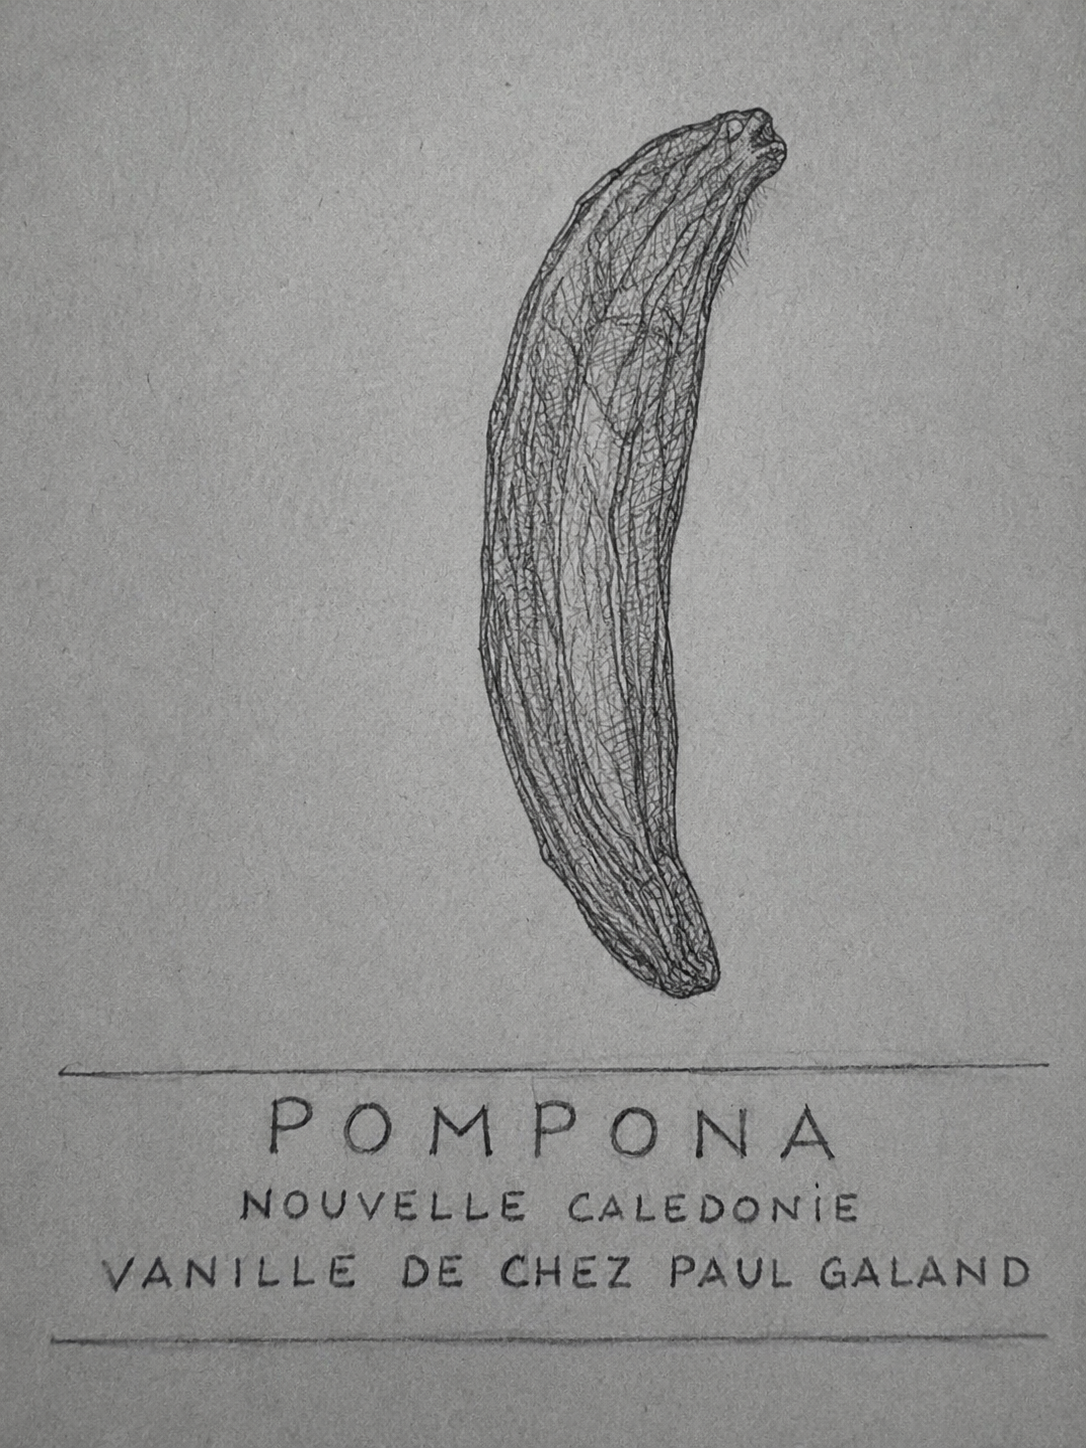 POMPONA
NOUVELLE CALEDONiE
VANILLE DE CHEZ PAUL GALAND